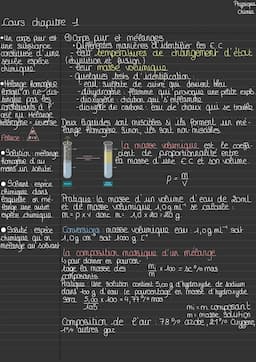 Physique
Chimie
Cours chapitre 1
• Un corps pur est
une substance
constituée d'une
seule espèce
chimique.
• Mélange homogène
les constituants d'
Hétérogène = inverse
• Solution mélange
homogène d'au
moins un soluté.
• Solvant espèce
chimique dans
laquelle on mé-
lange une autre
espèce chimique.
• Soluté espèce
chimique qu'on
mélange au solvant
① Corps pur et mélanges
- Différentes manières d'identifier les E.C
- leur températures de changement d'état
(ébullition et fusion)
- leur masse volumique
Quelques tests d'identification
- eau sulfate de cuivre qui devient bleu
- dihydrogène : flamme qui provoque une petite expl.
- dioxygène charbon qui s'enflamme
- dioxyde de carbone : eau de chaux qui se trouble
Deux liquides sont miscibles si ils forment un mé-
lange homogène. Sinon, ils sont non-miscibles.
la masse volumique est le coeffi-
cient de proportionnalité entre
la masse d'une E.C et son volume.
ρ = m/V
Pratique : la masse d'un volume d'eau de 20mL
et de masse volumique 1,0 g mL⁻¹ se calcule :
m = ρ x v donc m = 1,0 x 20 = 20 g
Conversions : masse volumique eau 1,0 g mL⁻¹ soit
la composition massique d'un mélange
↳ pour donner en pourcen-
tage la masse des
composants
Pratique : Une solution contient 5,00 g d'hydroxyde de sodium
dans 100 g d'eau le pourcentage en masse d'hydroxyde
sera
m = m composant
m = masse solution
Composition de l'air : 78% azote, 21% oxygène,
1% autres gaz